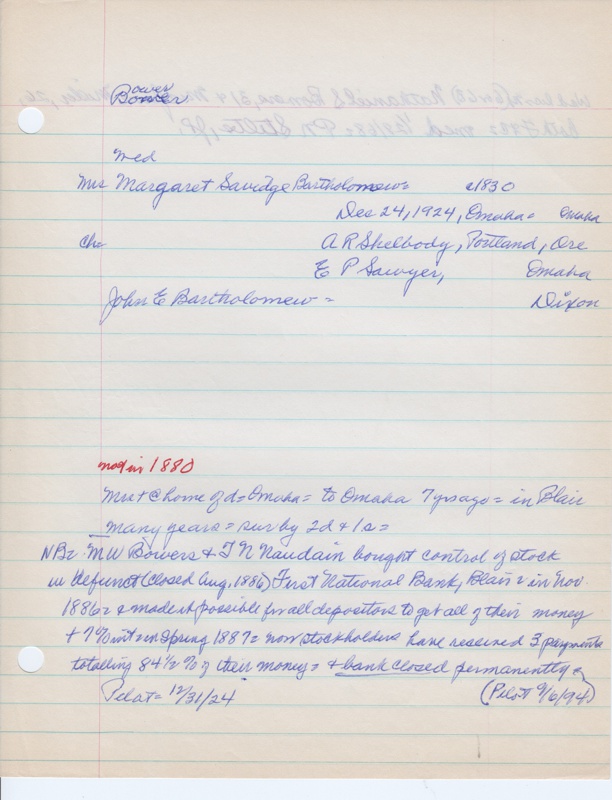 Bowers
Bower
med
Mrs Margaret Savidge Bartholomew = c1830
Dec 24, 1924, Omaha = Omaha
Ch = A R Shelbody, Portland, Ore
E P Sawyer, Omaha
John E Bartholomew = Dixon
not in 1880
Mrs + @ home of d = Omaha = to Omaha 7 yrs ago = in Blair
many years = sur by 2d & 1s =
NB = M W Bowers & T N Naudain bought control of stock
in defunct (closed Aug. 1886) First National Bank, Blair = in Nov.
1886 = & made it possible for all depositors to get all of their money
+ 7% int = in Spring 1887 = now stockholders have received 3 payments
totalling 84½ % of their money = & bank closed permanently =
Pilot = 12/31/24 (Pilot 9/6/94)